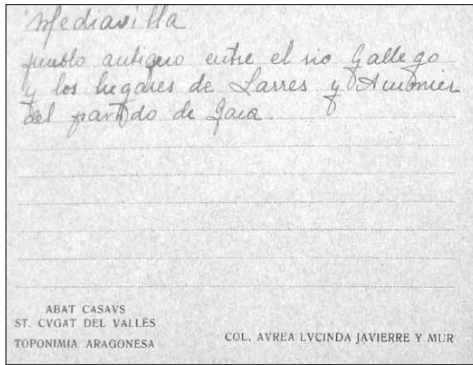 Mediavilla
pueblo antiguo entre el rio Gallego
y los lugares de Larres y
del partido de Jaca.
ABAT CASAVS
ST. CVGAT DEL VALLÉS
TOPONIMIA ARAGONESA
COL. AVREA LVCINDA JAVIERRE Y MUR